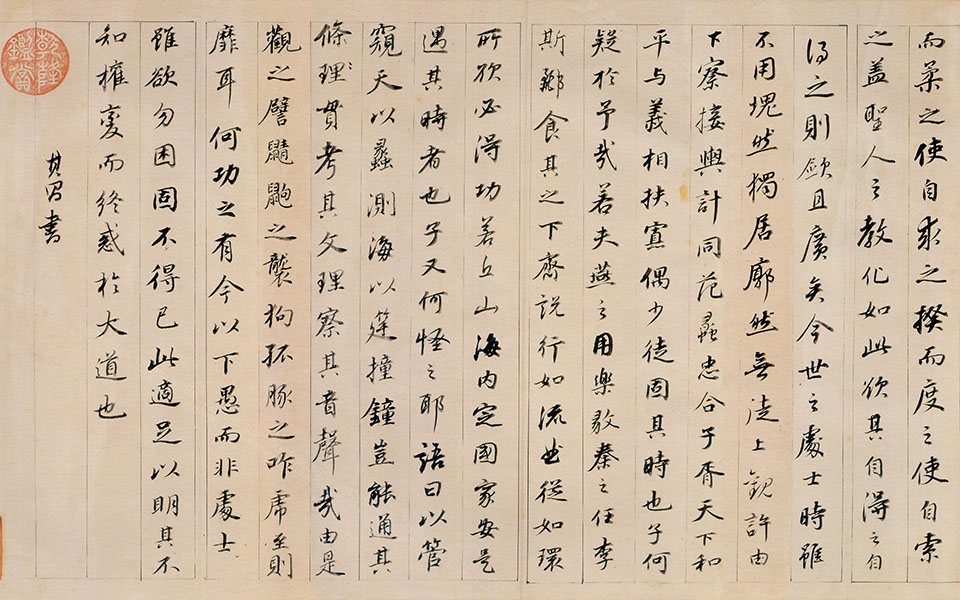 而柔之使自求之揆而度之使自索
之蓋聖人之教化如此欲其自得之自
得之則敏且廣矣今世之處士時雖
不用塊然獨居廓然無徒上觀許由
下察接輿計同范蠡忠合子胥天下和
平与義相扶寡偶少徒固其時也子何
疑於予哉若夫燕之用樂毅秦之任李
斯酈食其之下齊說行如流曲從如環
所欲必得功若丘山海内定國家安是
遇其時者也子又何怪之耶語曰以管
窺天以蠡測海以筳撞鐘豈能通其
條理貫考其文理察其音聲哉由是
觀之譬鼱鼩之襲狗孤豚之咋虎至則
靡耳何功之有今以下愚而非處士
雖欲勿困固不得已此適足以明其不
知權變而終惑於大道也
其昌書
乾隆鑑賞